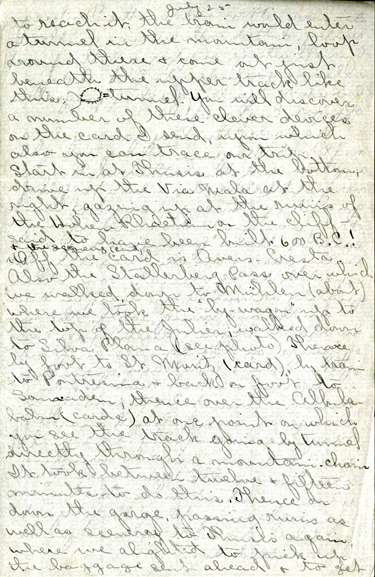 July 25
to reach it the train would enter
a tunnel in the mountain, loop
around there & come out just
beneath the upper track like
this: = tunnel. You will discover
a number of these clever devices
on the card I send, upon which
also you can trace our trip.
Start in at Thusis at the bottom;
drive up the Via Mala at the
right, gazing up at the ruins of
the on the cliff -
said to have been built 600 B.C.!
Off the card is Avers-Cresta.
Also the Stallerberg Pass over which
we walked, down to (about)
where we took the "by-wagon" up to
the top of the Julier, walked down
to Silva Plana (see photo). Thence
by foot to St Moritz (card), by train
to Pontresina & back on foot to
Samaden; thence over the Albula
bahn (cards) at one point on which
you see the track going by tunnel
directly through a mountain chain
It took between twelve & fifteen
minutes to do this. Thence on
down the gorge passing ruins as
well as scenery to Thusis again
where we alighted to pick up
the baggage sent ahead & to get